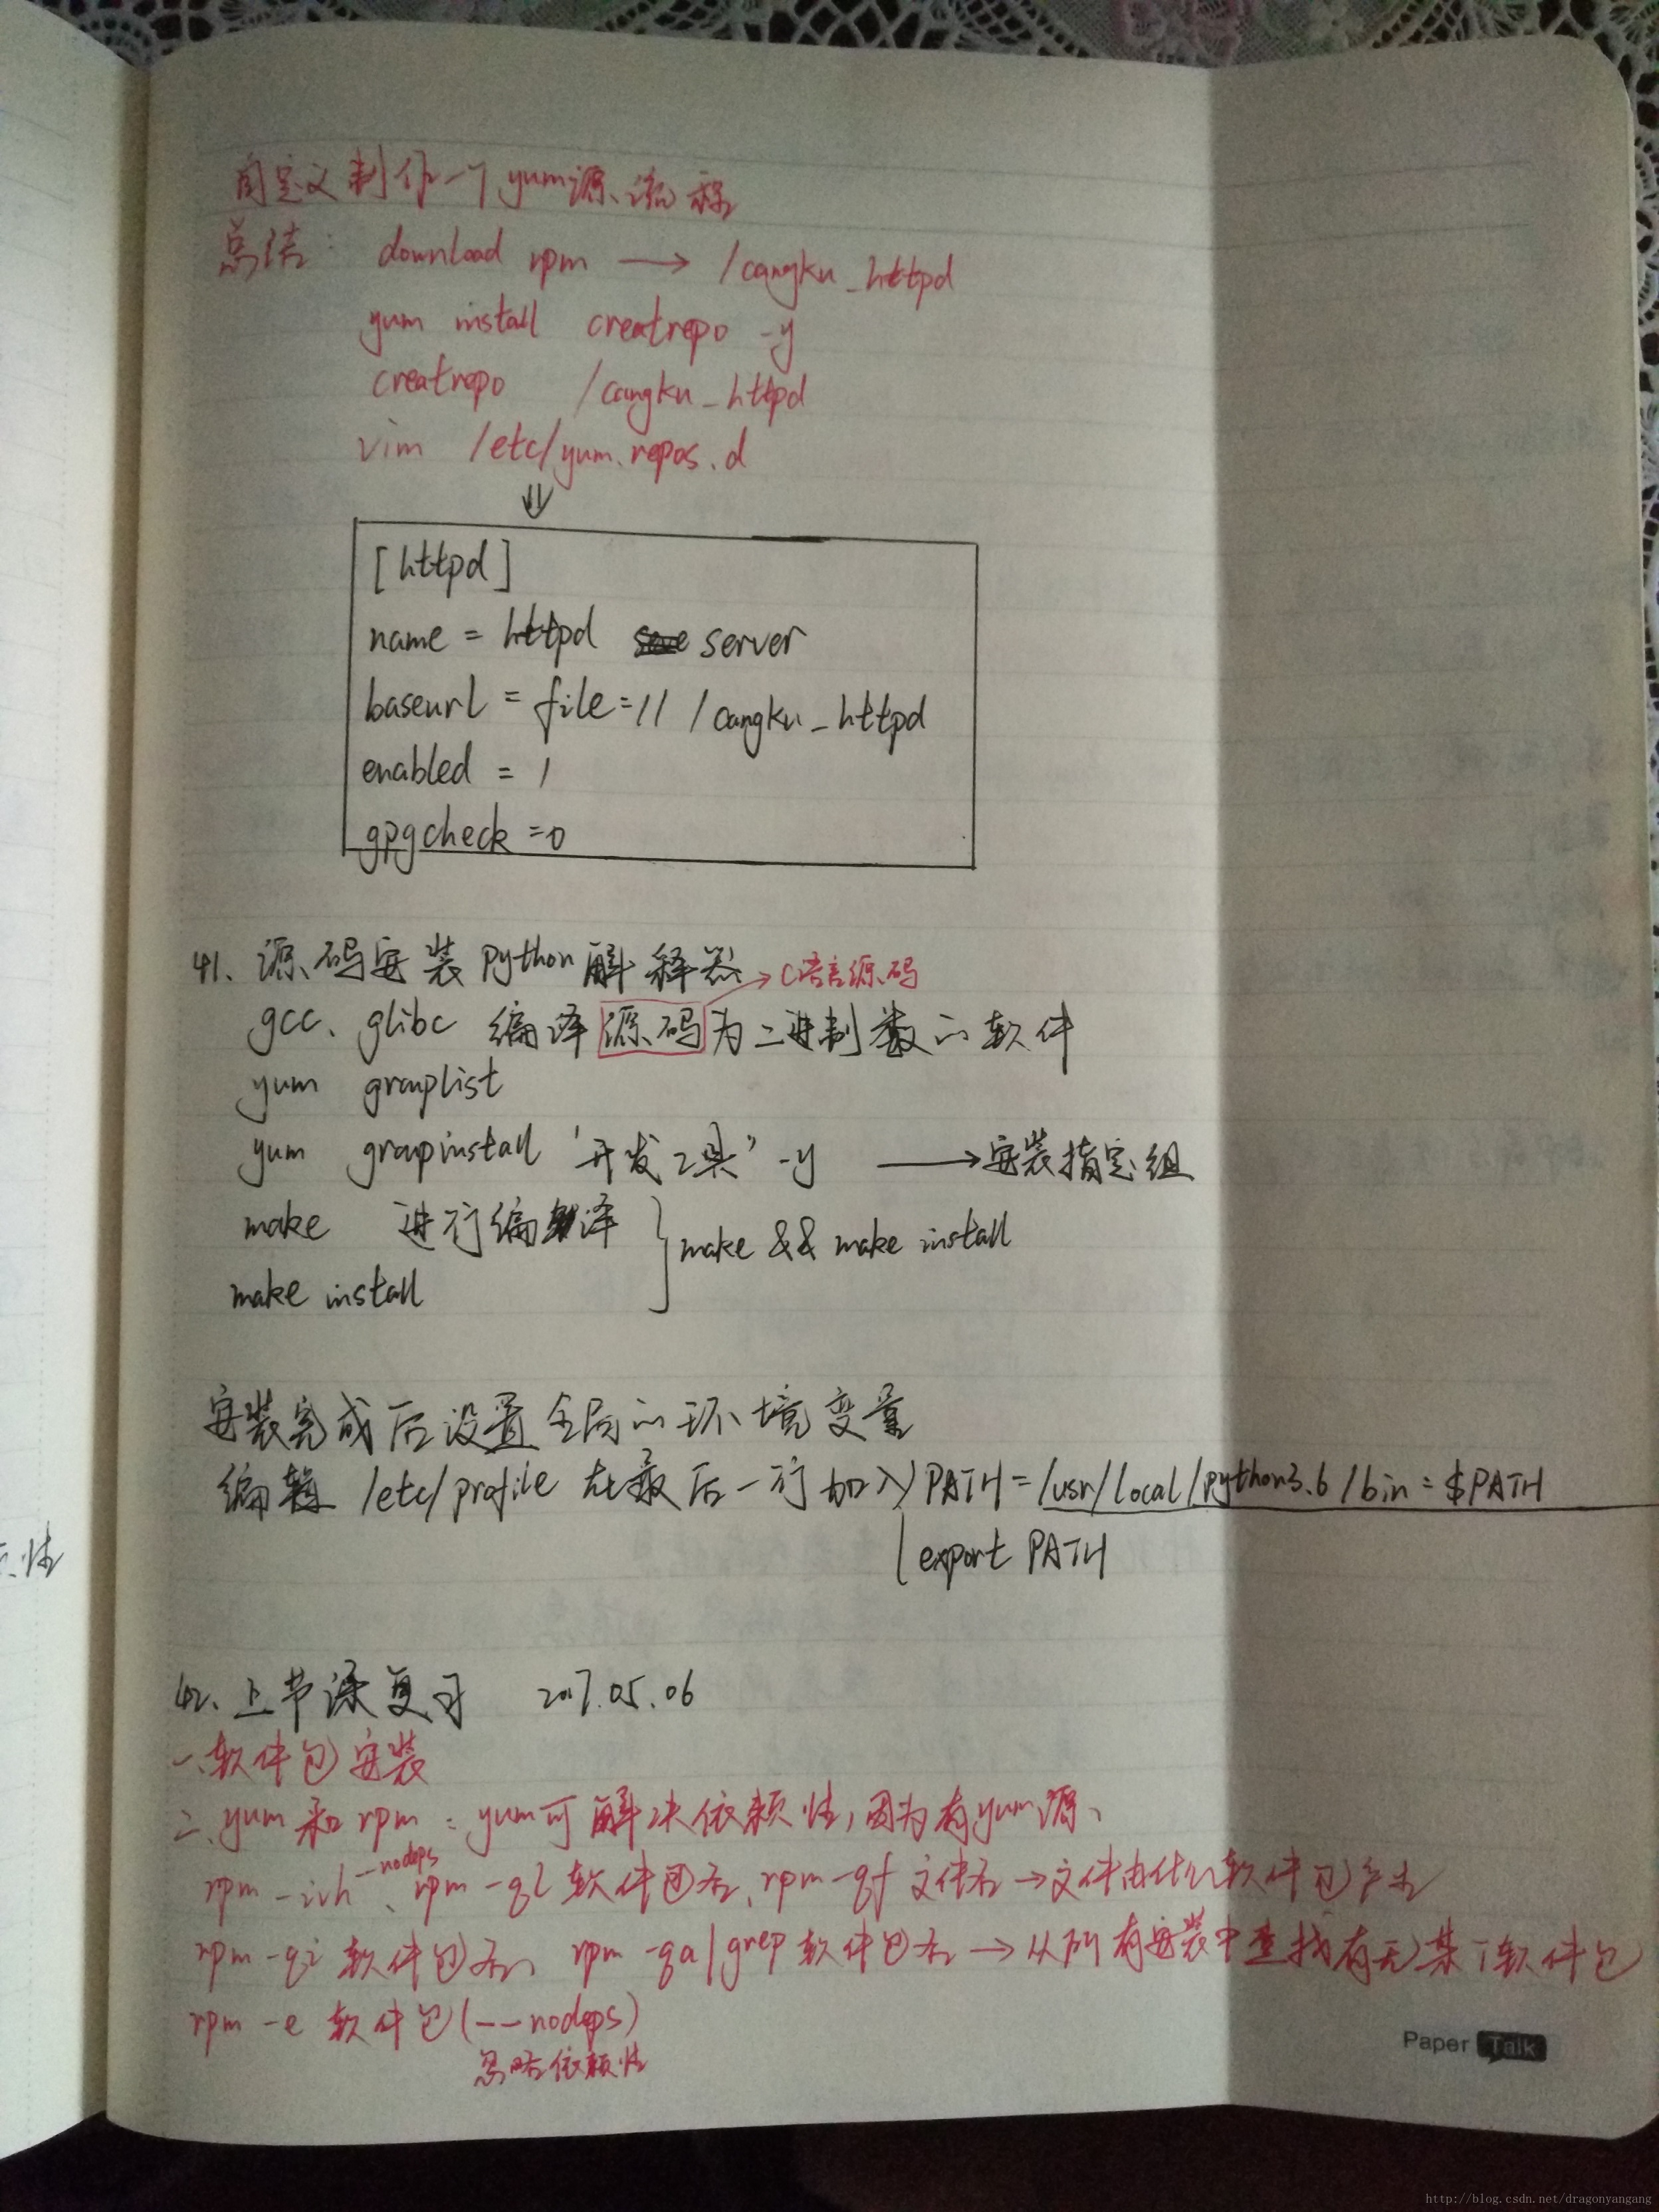 自定义制作一个yum源流程
总结: download rpm → /cangku_httpd
yum install creatrepo -y
creatrepo /cangku_httpd
vim /etc/yum.repos.d
⇓
[httpd]
name = httpd server
baseurl = file=// /cangku_httpd
enabled = 1
gpgcheck =0
41、源码安装python解释器 → C语言源码
gcc、glibc 编译源码为二进制数的软件
yum grouplist
yum groupinstall '开发工具' -y → 安装指定组
make 进行编译 } make && make install
make install
安装完成后设置全局的环境变量
编辑 /etc/profile 在最后一行加入 PATH=/usr/local/python3.6/bin=$PATH
export PATH
42、上节课复习 2017.05.06
一、软件包安装
二、yum和rpm：yum可解决依赖性,因为有yum源、
rpm -ivh --nodeps、rpm -ql 软件包名、rpm -qf 文件名→文件由什么软件包产生
rpm -qi 软件包名、rpm -qa|grep 软件包名→从所有安装中查找有无某个软件包
rpm -e 软件包(--nodeps)
忽略依赖性
性
Paper Talk
http://blog.csdn.net/dragonyangang